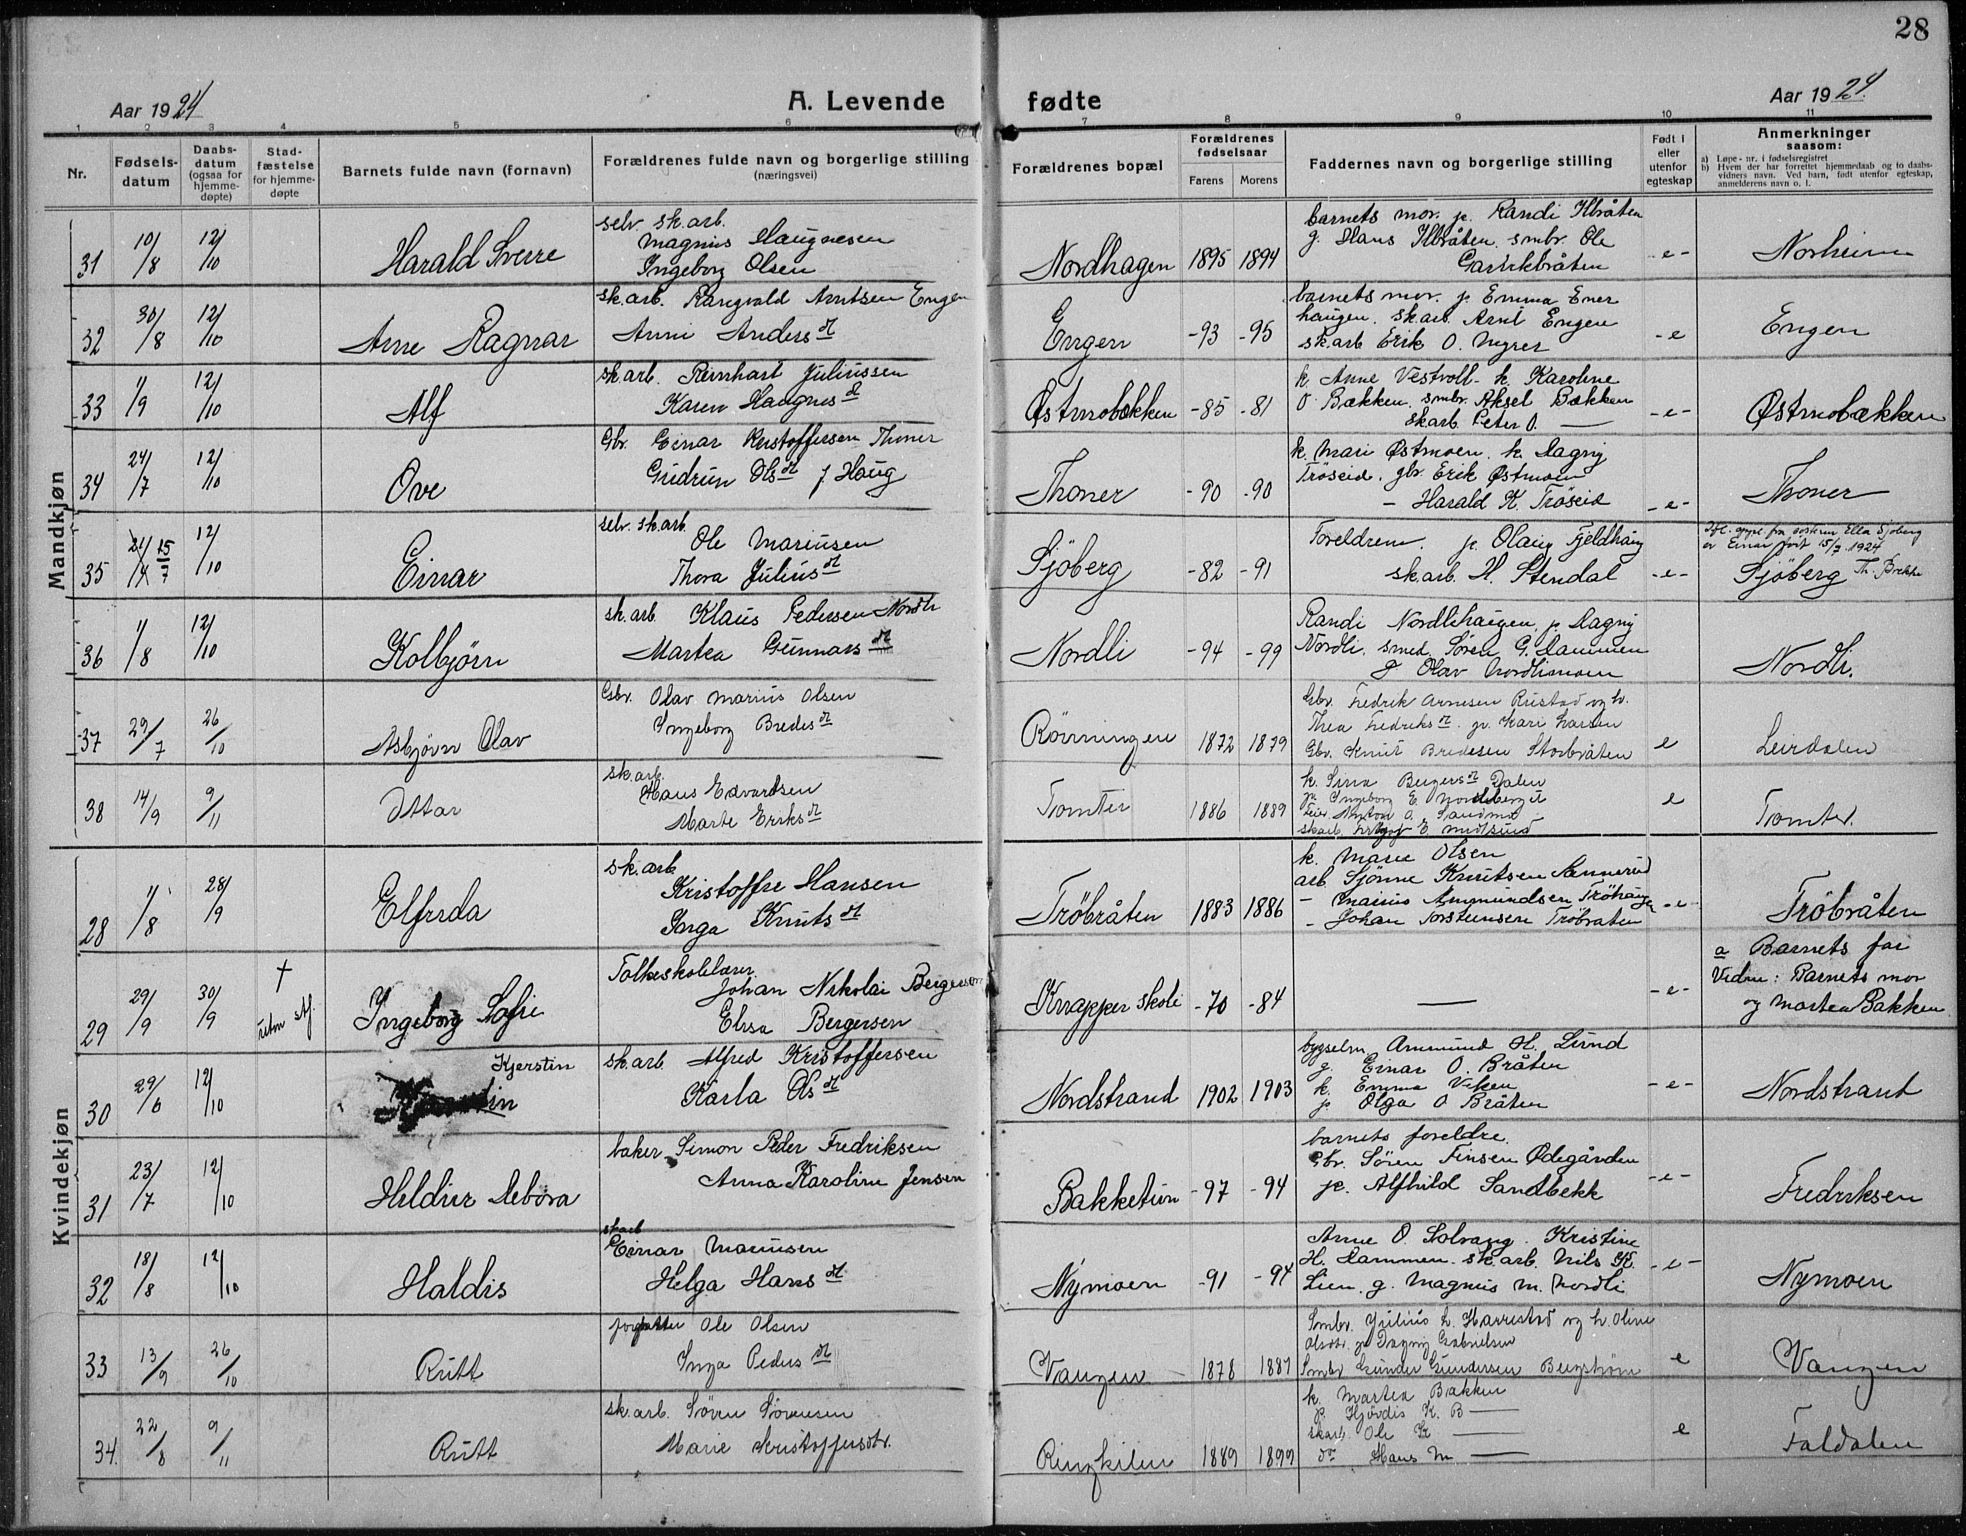 28
Aar 1924
A. Levende fødte
Aar 1924.
1 2 3 4 5 6 7 8 9 10 11
Nr.
Fødsels-
datum
Daabs-
datum
(ogsaa for
hjemme-
døpte)
Stad-
fæstelse
for hjemme-
døpte
Barnets fulde navn (fornavn)
Forældrenes fulde navn og borgerlige stilling
(næringsvei)
Forældrenes bopæl
Forældrenes
fødselsaar
Farens Morens
Faddernes navn og borgerlige stilling
Født i
eller
utenfor
egteskap
Anmerkninger
saasom:
a) Løpe-nr. i fødselsregistret
b) Hvem der har forrettet hjemmedaab og to daabs-
vidners navn. Ved barn, født utenfor egteskap,
anmelderens navn o. l.
Mandkjøn
31 10/8 12/10 Harald Sverre
selv. sk.arb.
Magnus Haugnesen
Ingeborg Olsen
Nordhagen 1895 1894
barnets mor. p. Randi Ilbråten
g. Hans Ilbråten. smbr. Ole
-e- Norheim
32 30/8 12/10 Arne Ragnar
sk.arb. Rangvald Arntsen Engen
Anni Anders dt
Engen -93 -95
barnets mor. p. Emma Ener
haugen. sk.arb. Arnt Engen
sk.arb Erik O. Myrer
-e Engen
33 1/9 12/10 Alf
sk.arb. Reinhart Juliussen
Karen Haugnes dt
Østmobækken -85 -81
k. Anne Vestvoll. k. Karoline
O Bækken. smbr. Aksel Bækken
skarb. Peter O. —
-e- Østmobækken
34 24/7 12/10 Ove
Gbr. Einar Kristoffersen Thoner
Gudrun Ols dt f. Haug
Thoner -90 -90
k. Mari Østmoen. k. Dagny
Trøseid. gbr. Erik Østmoen
- Harald K. Trøseid
-e- Thoner
35 15/7 12/10 Einar
selv. sk.arb.
Ole Mariusen
Thora Julius dt
Sjöberg -82 -91
Foreldrene. p. Olaug Fjeldhaug
skarb. H. Stendal
-e-
Ifl. oppl. fra søsteren Ella Sjøberg
er Einar født 15/7 1924
Sjöberg Th. Brekke
36 1/8 12/10 Kolbjørn
sk.arb. Klaus Pedersen Nordli
Martea Gunnars dt
Nordli -94 -99
Randi Nordlihaugen, p. Dagny
Nordli. smed. Søren G. Dammen
g Olav Nordlimoen
Nordli.
37 29/7 26/10 Asbjørn Olav
Gbr. Olav Marius Olsen
Ingeborg Bredes dt
Rövningen 1872 1879
Gbr. Fredrik Arnesen Rustad og h.
Thea Fredriks dt. p. Kari Larsen
Gbr. Knut Bredesen Storbråten
e Leirdalen
38 14/9 9/11 Ottar
sk.arb.
Hans Edvardsen
Marte Eriks dt
Tomter 1886 1889
k. Sina Bergers dt Dalen
p. Ingeborg E. Nordsberget
e Tomter.
Kvindekjøn
28 1/8 28/9 Elfrida
sk.arb
Kristoffer Hansen
Inga Knuts dt
Tröbråten 1883 1886
k. Marie Olsen
arb. Sjönne Knutsen Sannerud
- Marius Ammundsen Tröhaugen
- Johan Torsteinsen Tröbraten
-e- Tröbråten
29 29/9 30/9 † Ingeborg Sofie
Folkeskolelærer
Johan Nikolai Bergersen
Elisa Bergersen
Knapper skole -70 -84
—
-e-
a Barnets far
Vidne: Barnets mor
og Martea Bakken
30 29/6 12/10 Kjerstin
sk.arb. Alfred Kristoffersen
Karla Ols dt
Nordstrand 1902 1903
bygselm. Ammund H. Lund
g. Einar O. Bråten
k. Emma Viken
p. Olga O Bråten
-e- Nordstrand
31 23/7 12/10 Heldur Debora
baker Simon Peder Fredriksen
Anna Karoline Jensen
Bakketun -97 -94
barnets foreldre.
Gbr. Sören Finsen Ødegården
p. Alfhild Sandbekk
-e- Fredriksen
32 18/8 12/10 Haldis
skarb
Einar Mariusen
Helga Hans dt
Nymoen -91 -94
Anne O. Solvang. Kristine
H. Dammen. sk.arb. Nils K.
Lien. g. Magnus M. Nordli
-e- Nymoen
33 13/9 26/10 Rutt
forpakter Ole Olsen
Inga Peders dt
Vangen 1878 1887
Smbr. Julius L. Harrestad og h. Oline
Olsdtr. p. Dagny Gabrielsen
Smbr Gunder Gundersen Bergström
e Vangen
34. 22/8 9/11 Rutt
sk.arb. Søren Sørensen
Marie Kristoffersdtr.
Ringkilen 1889 1899
k. Martea Bakken
p. Hjørdis K. B —
skarb. Ole K —
do Hans M. —
e Faldalen